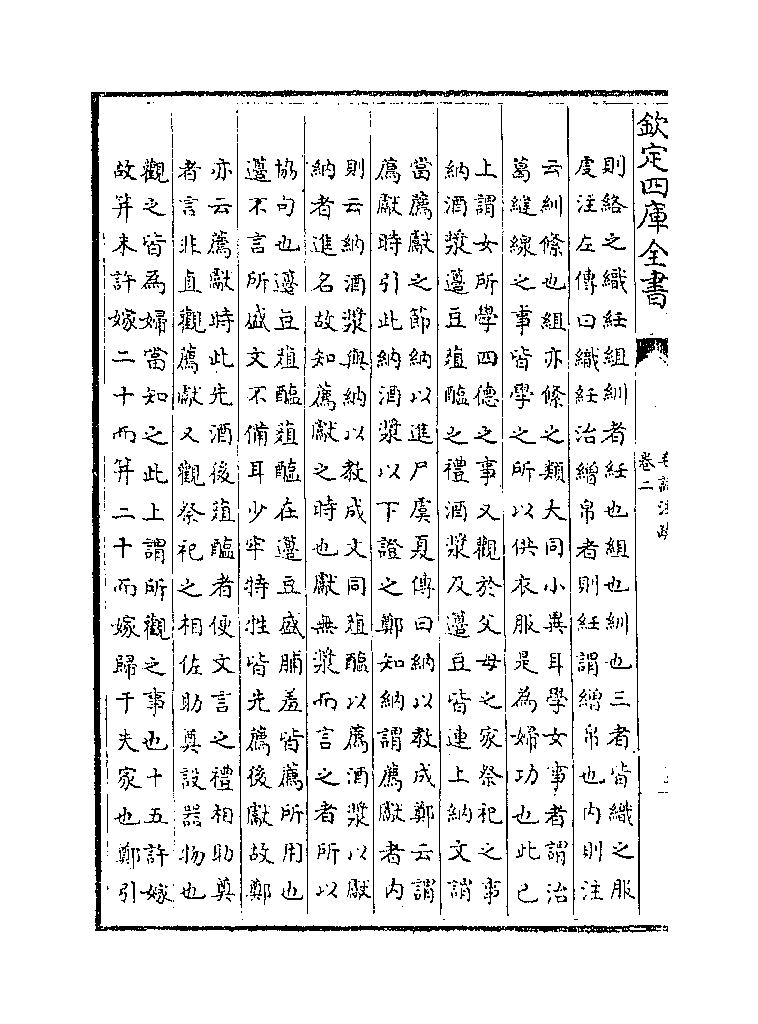 欽定四庫全書
卷二
則絡之織紝組紃者紝也組也紃也三者皆織之服
虔注左傳曰織紝治繒帛者則紝謂繒帛也内則注
云紃絛也組亦絛之類大同小異耳學女事者謂治
葛縫線之事皆學之所以供衣服是為婦功也此已
上謂女所學四德之事又觀於父母之家祭祀之事
納酒漿籩豆葅醢之禮酒漿及籩豆皆連上納文謂
當薦獻之節納以進尸虞夏傳曰納以教成鄭云謂
薦獻時引此納酒漿以下證之鄭知納謂薦獻者内
則云納酒漿與納以教成文同葅醢以薦酒漿以獻
納者進名故知薦獻之時也獻無漿而言之者所以
協句也籩豆葅醢葅醢在籩豆盛脯羞皆薦所用也
籩不言所盛文不備耳少牢特牲皆先薦後獻故鄭
亦云薦獻時此先酒後葅醢者便文言之禮相助奠
者言非直觀薦獻又觀祭祀之相佐助奠設器物也
觀之皆為婦當知之此上謂所觀之事也十五許嫁
故笄未許嫁二十而笄二十而嫁歸于夫家也鄭引